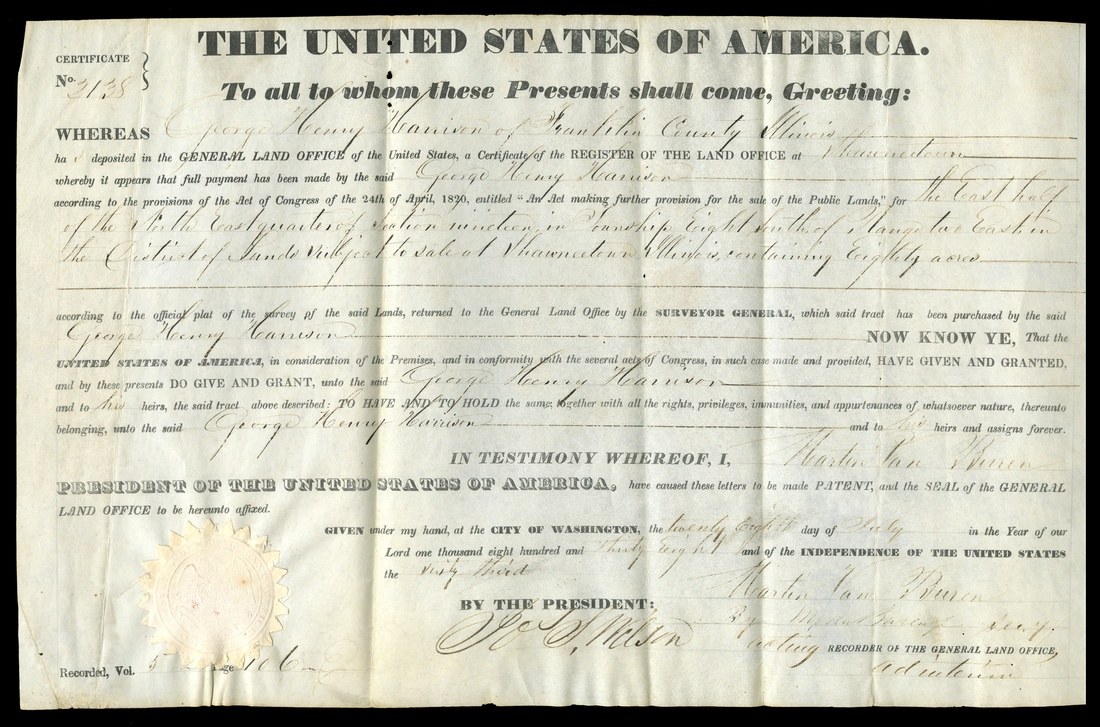 THE UNITED STATES OF AMERICA.
CERTIFICATE
No. 3138
To all to whom these Presents shall come, Greeting:
WHEREAS George Henry Harrison of Franklin County Illinois
ha s deposited in the GENERAL LAND OFFICE of the United States, a Certificate of the REGISTER OF THE LAND OFFICE at Shawneetown
whereby it appears that full payment has been made by the said George Henry Harrison
according to the provisions of the Act of Congress of the 24th of April, 1820, entitled "An Act making further provision for the sale of the Public Lands," for the East half
of the North East quarter of Section nineteen, in Township Eight South, of Range two East in
the District of Lands Subject to sale at Shawneetown Illinois, containing Eighty acres
according to the official plat of the survey of the said Lands, returned to the General Land Office by the SURVEYOR GENERAL, which said tract has been purchased by the said
George Henry Harrison NOW KNOW YE, That the
UNITED STATES OF AMERICA, in consideration of the Premises, and in conformity with the several acts of Congress, in such case made and provided, HAVE GIVEN AND GRANTED,
and by these presents DO GIVE AND GRANT, unto the said George Henry Harrison
and to his heirs, the said tract above described: TO HAVE AND TO HOLD the same, together with all the rights, privileges, immunities, and appurtenances of whatsoever nature, thereunto
belonging, unto the said George Henry Harrison and to his heirs and assigns forever.
IN TESTIMONY WHEREOF, I, Martin Van Buren
PRESIDENT OF THE UNITED STATES OF AMERICA, have caused these letters to be made PATENT, and the SEAL of the GENERAL
LAND OFFICE to be hereunto affixed.
GIVEN under my hand, at the CITY OF WASHINGTON, the twenty Eighth day of July in the Year of our
Lord one thousand eight hundred and thirty Eight and of the INDEPENDENCE OF THE UNITED STATES
the sixty third
Martin Van Buren
BY THE PRESIDENT:
By Sec'y.
Jos. S. Wilson acting RECORDER OF THE GENERAL LAND OFFICE,
ad interim
Recorded, Vol. 5 Page 106